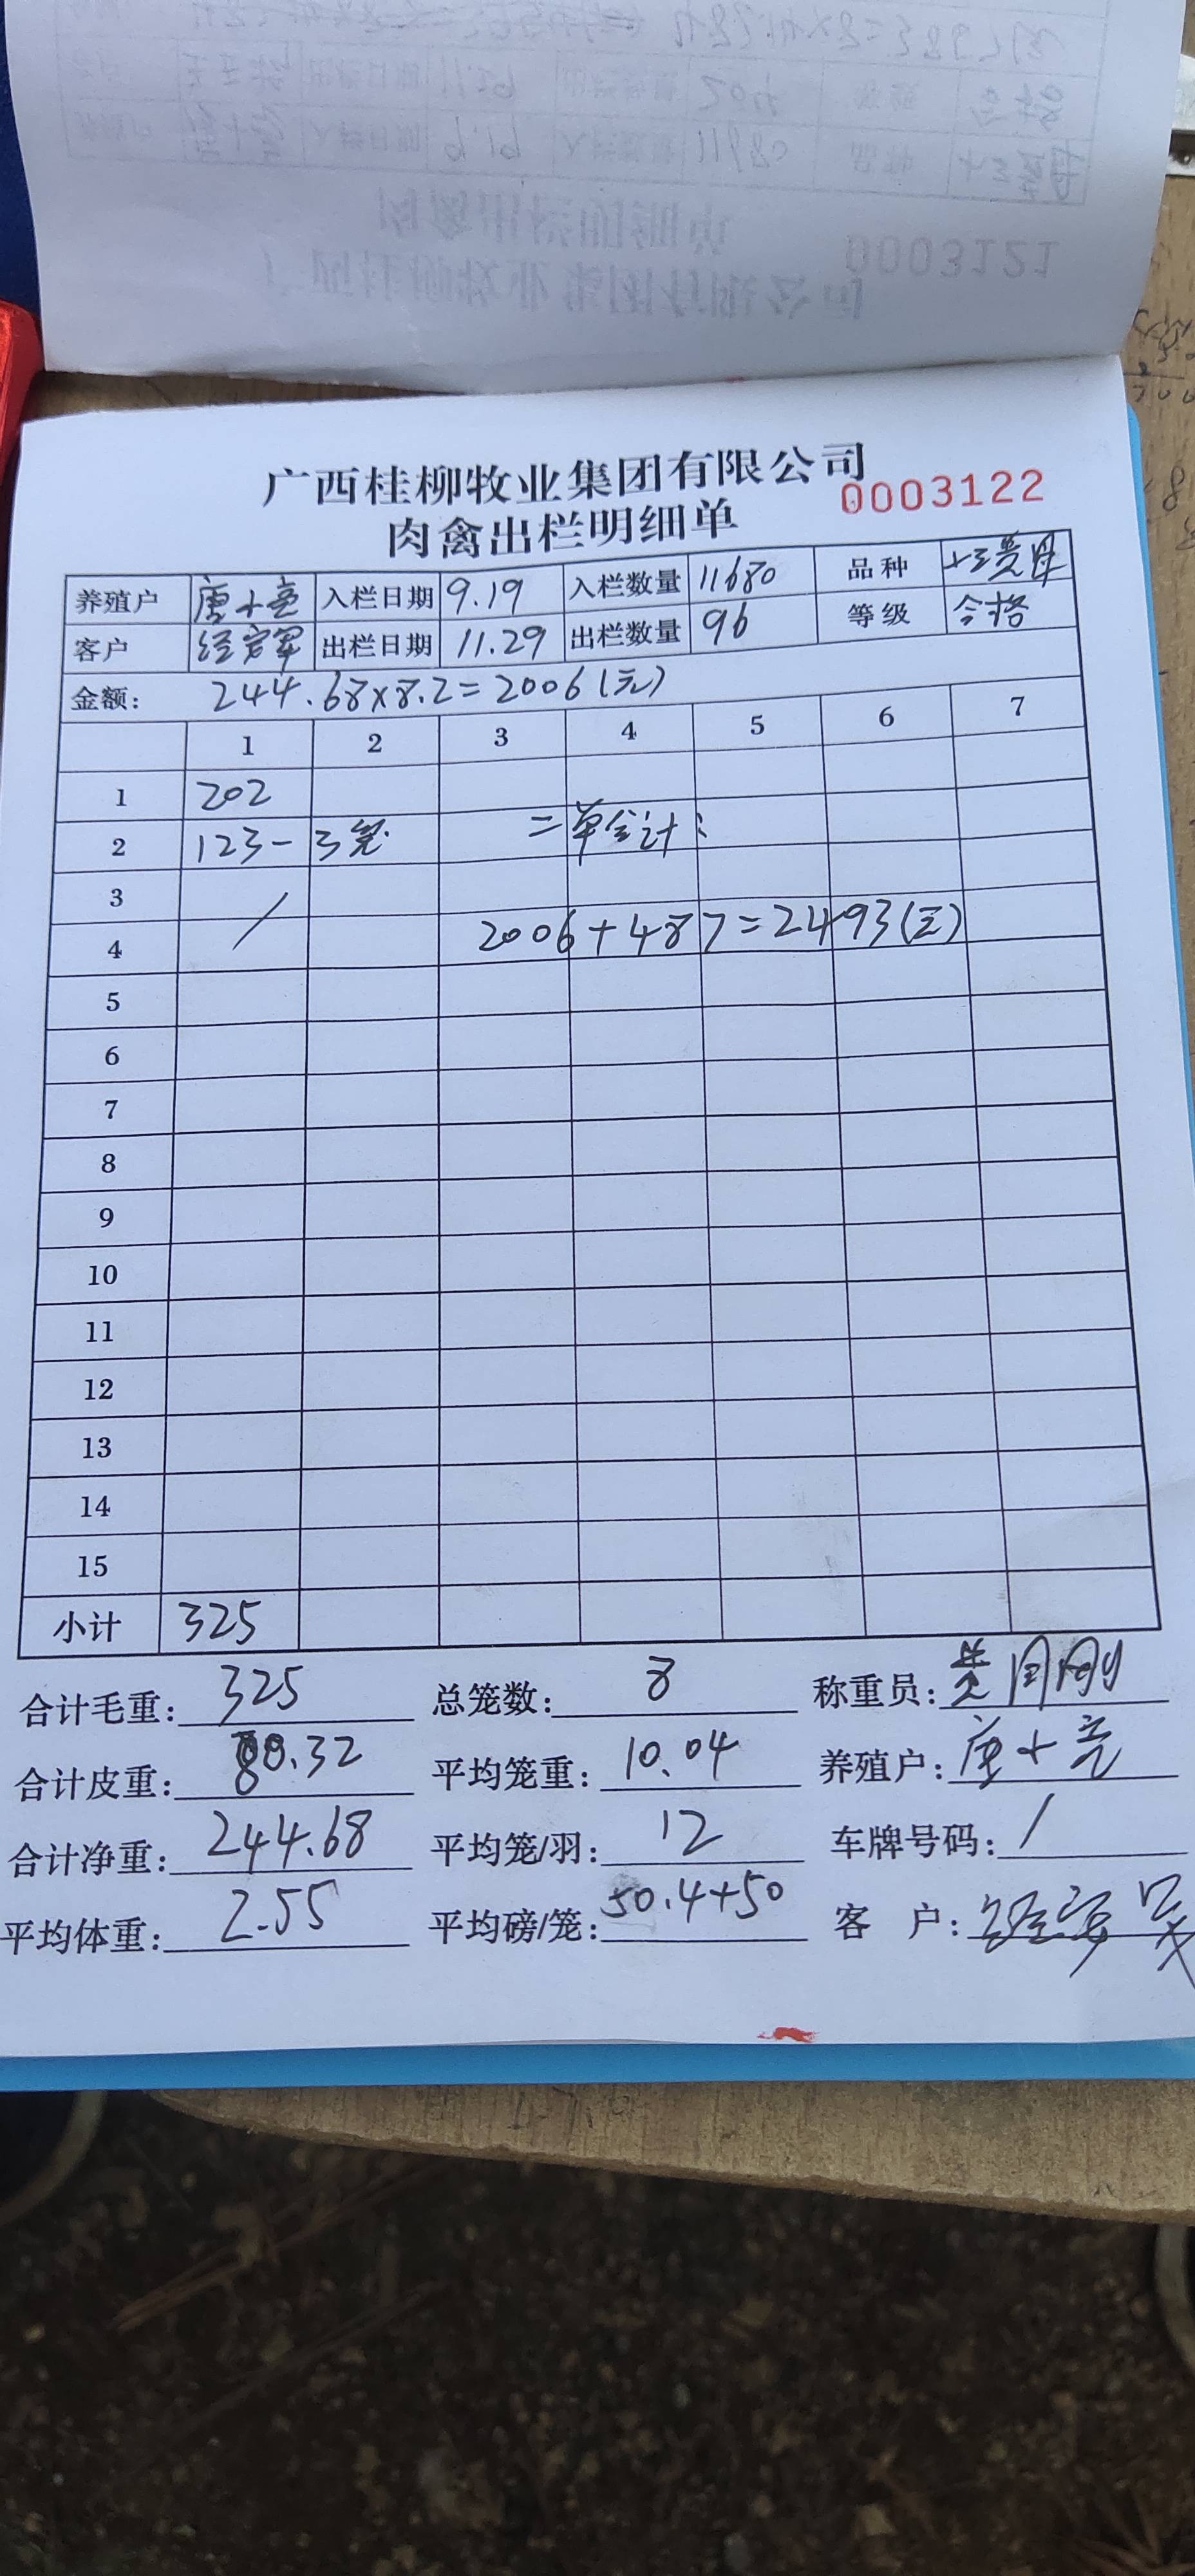 0003121
广西桂柳牧业集团有限公司
0003122
肉禽出栏明细单
养殖户 唐十亮 入栏日期 9.19 入栏数量 11680 品种
客户 出栏日期 11.29 出栏数量 96 等级 合格
金额: 244.68×8.2=2006(元)
1 2 3 4 5 6 7
1 202
2 123-3笼 二单合计:
3
4 2006+487=2493(元)
5
6
7
8
9
10
11
12
13
14
15
小计 325
合计毛重: 325 总笼数: 8 称重员:
合计皮重: 80.32 平均笼重: 10.04 养殖户: 唐十亮
合计净重: 244.68 平均笼/羽: 12 车牌号码: /
平均体重: 2.55 平均磅/笼: 50.4+50 客户: